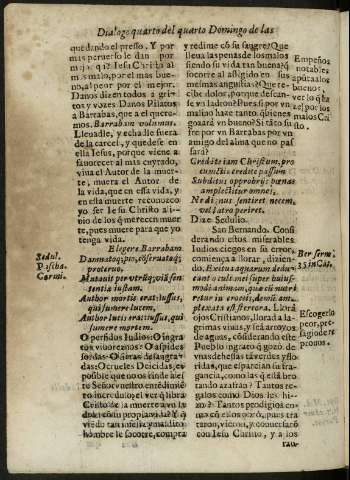 Dialogo quarto del quarto Domingo de las
quedando el presso, Y por
mas peruerso le dan por
mejor q̃ a Iesu Christo al
mas malo, por el mas bue-
no, al peor por el mejor.
Danos dizen todos a gri-
tos y vozes Danos Pilatos
a Barrabas, que a el quere-
mos. Barrabam volumus.
Lleuadle, y echadle fuera
de la carcel, y quedese en
ella Iesus, porque viene a
fauorecer al mas cuytado,
viua el Autor de la muer-
te, muera el Autor de
la vida, que en essa vida, y
en essa muerte reconozco
yo ser Iesu Christo aliui-
de los q̃ merecen muer
te, pues muere para que yo
tenga vida.
Elegere Barrabam
Damnatoq; pio, reseruatoq;
proteruo.
Mutauit peruersũq; viã sen-
tentia iustam.
Author mortis erat: iussus,
qui sumere lucem,
Author lucis erat: iussus, qui
sumere mortem.
O perfidos Iudios: O ingra
tos viuorezios: O aspides
sordas: O sierras desagra-
das: O crueles Deicidas, es
possible que no os rinde a ser
tu Señor vuestro entẽdimiẽ
to incredulo, el ver q̃ libra
Christo de la muerte a vn la
drõ con su propia vida? Y q̃
viẽdo tan injusto y maldito
hombre le socorre, compra
y redime cõ su sangre? Que
lleua las penas de los malos
siendo su vida tan buena? q̃
socorre al afligido en sus
mesmas angustias? Que re-
cibe dolor, porque descan-
se vn ladron? Pues si por vn
malo haze tanto, quienes
gozarà vn bueno? Si tãto su
fre por vn Barrabas por vn
amigo del alma que no pas
sarà?
Credite iam Christum, pro
cunctis credite passum
Subditus opprobrijs pœnas
amplectitur omnes.
Ne di nus sentiret necem,
vel latro periret.
Dize Sedulio.
San Bernando. Consi-
derando estos miserables
Iudios ciegos en su error,
comiença a llorar, dizien-
do. Exitus aquarum dedu-
cant oculi mei super huius-
modi animam, quæ cũ nutri
retur in croceis,
plexata est stercora. Llorẽ
ojos Cristianos, llorad a la-
grimas viuas, y sea arroyos
de aguas, considerando este
Pueblo ingrato q̃ gozò de
vnas dehesas tã verdes y flo-
ridas, que espantan su fra-
gancia, como las q̃ està bro
tando açafran? Tantos re-
galos como Dios les hi-
zo? Tantos prodigios co-
mo cõ ellos obrò, pues tra
taron, vieron, y conuersarõ
con Iesu Christo, y a los
rau-
Sedul.
Pascha.
Carmi.
Empeños
notables
apũta a los
buenos:
ver lo q̃ ha
ze por los
malos Cri
sto.
Ber serm.
35 in Cãt.
Escoger lo
peor, pre-
sagio de re
prouos.